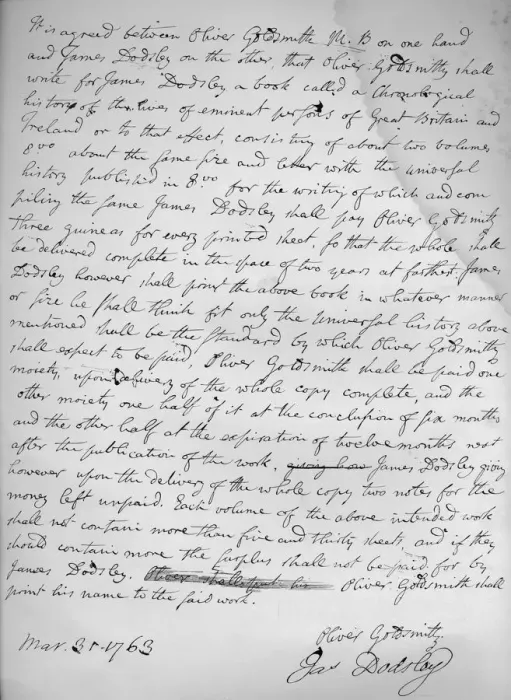 It is agreed between Oliver Goldsmith M. B on one hand
and James Dodsley on the other, that Oliver Goldsmith shall
write for James Dodsley a book called a Chronological
history of the lives of eminent persons of Great Britain and
Ireland or to that effect, consisting of about two volumes
8vo about the same size and letter with the universal
history published in 8vo for the writing of which and com
piling the same James Dodsley shall pay Oliver Goldsmith
three guineas for every printed sheet, so that the whole shall
be delivered complete in the space of two years at farthest. James
Dodsley however shall print the above book in whatever manner
or size he shall think fit only the Universal history above
mentioned shall be the standard by which Oliver Goldsmith
shall expect to be paid, Oliver Goldsmith shall be paid one
moiety, upon delivery of the whole copy complete, and the
other moiety one half of it at the conclusion of six months
and the other half at the expiration of twelve months next
after the publication of the work, giving how James Dodsley giving
however upon the delivery of the whole copy two notes for the
money left unpaid. Each volume of the above intended work
shall not contain more than five and thirty sheets, and if they
should contain more the surplus shall not be paid for by
James Dodsley. Oliver Goldsmith shall
print his name to the said work.
Mar. 31-1763
Oliver Goldsmith.
Jas Dodsley